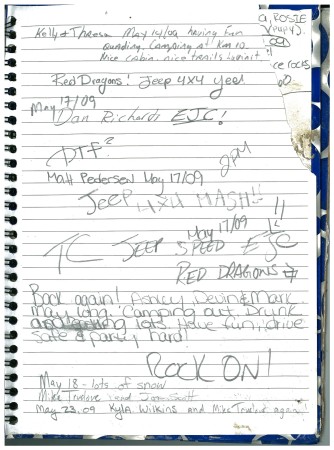 Kelly & Theresa May 14/09 having fun
quading, Camping at Km 10.
Nice cabin, nice trails
a, ROSIE
(puppy).
09
ce rocks
Red Dragons! Jeep 4x4 yee!
May 17/09
Dan Richards EJC!
DTF?
2PM
Matt Pedersen May 17/09
JEEP 4x4 MASH!!
May 17/09 !!
TC JEEP SPEED EJC
RED DRAGONS
Back again! Ashley, Devin & Mark
May long. Camping out. Drunk
lots. Have fun, drive
safe & party hard!
ROCK ON!
May 18 - lots of snow
Mike Truelove and Jason Scott
May 23, 09 Kyla Wilkins and Mike Truelove again!